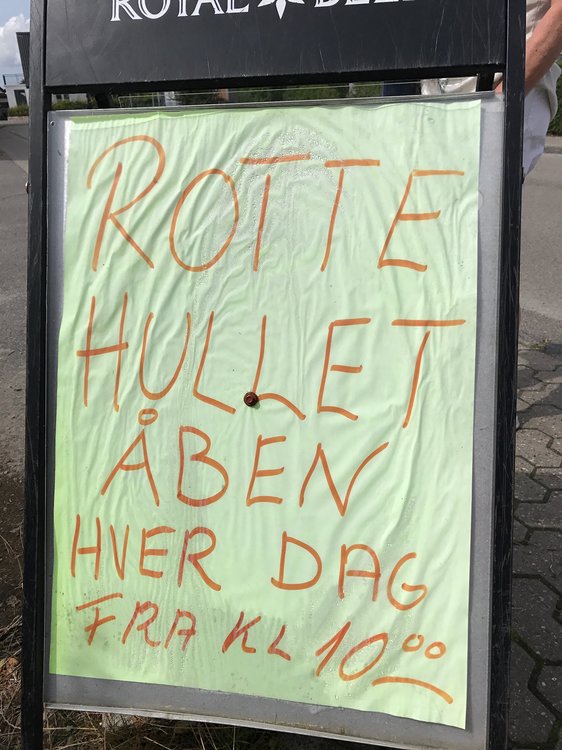 ROYAL
ROTTE
HULLET
ÅBEN
HVER DAG
FRA KL 10⁰⁰